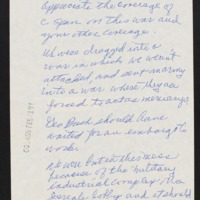 Appreciate the coverage of
C-Span on this war and
your other coverage.
We were dragged into a
war in which we weren't
attacked, and our army
into a war where they are
forced to act as mercenarys
Geo Bush should have
waited for an embargo to
work.
We were into this mess
because of the "military
industrial complex" the
Israeli Lobby and